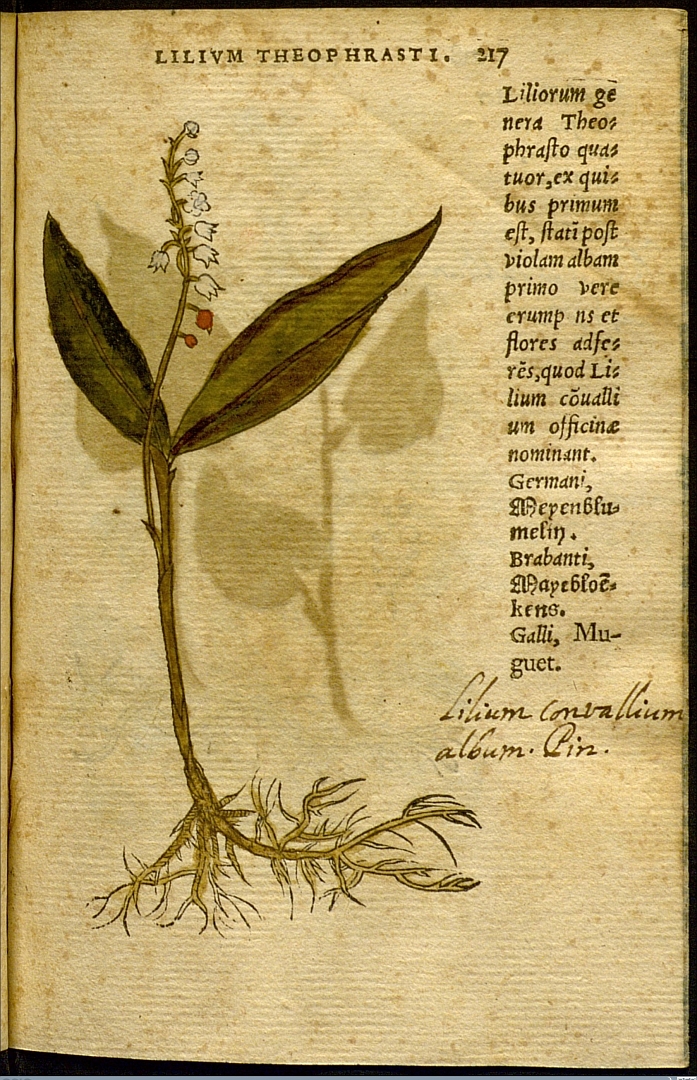 LILIVM THEOPHRASTI. 217
Liliorum gē
nera Theo⸗
phraſto qua⸗
tuor, ex qui⸗
bus primum
eſt, ſtatī poſt
violam albam
primo vere
erump ns et
flores adfe⸗
rēs, quod Li⸗
lium cōualli
um officinæ
nominant.
Germani,
Meyenblu⸗
melin.
Brabanti,
Mayebloē⸗
kens.
Galli, Mu-
guet.
Lilium convallium
album. Pin.